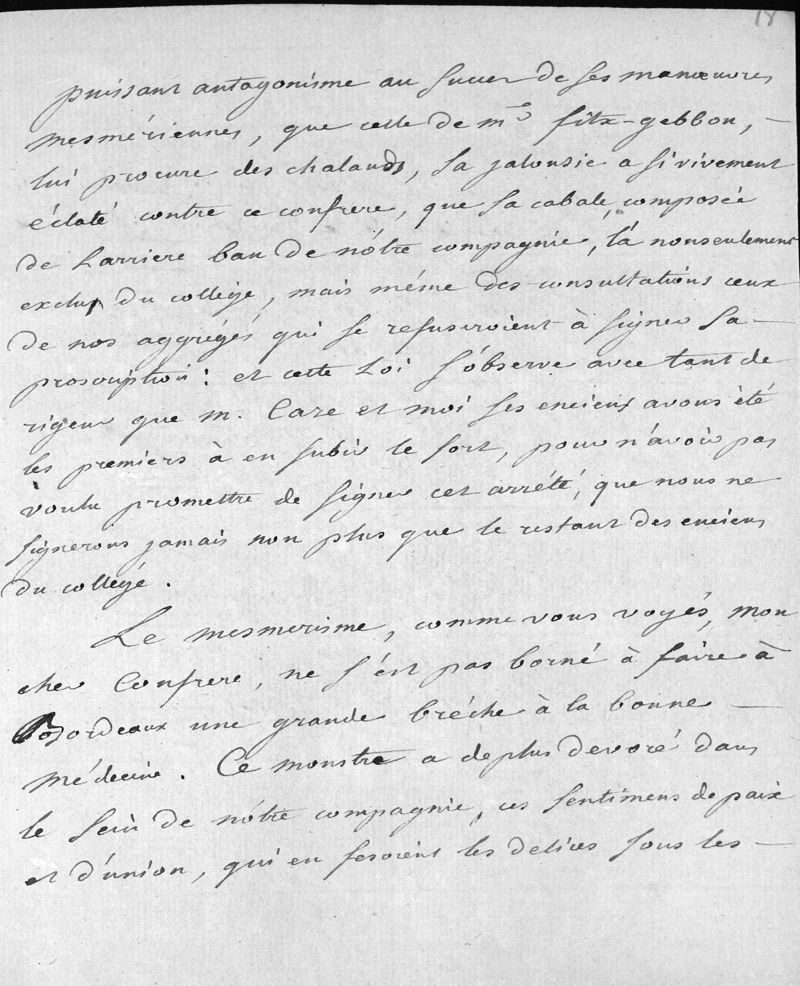 18
puissant antagonisme au succer de ses manœuvres
mesmériennes, que celle de me fitx-gebbon, —
lui procure des chalands, sa jalousie a si vivement
éclaté contre ce confrere, que sa cabale composée
de Larriere ban de nôtre compagnie, l'a nonseulement
exclus du college, mais même des consultations ceux
de nos aggrégés qui se refuseroient à signer sa —
proscription: et cette Loi s'observe avec tant de
rigeur que m. Caze et moi ses enciens avons été
les premiers à en subir le sort, pour n'avoir pas
voulu promettre de signer cet arrété, que nous ne
signerons jamais non plus que le restant des enciens
du collégé.
Le mesmerisme, comme vous voyés, mon
cher Confrere, ne s'est pas borné à faire à
Bordeaux une grande bréche à la bonne —
médecine. Ce monstre a deplus devoré dans
le sein de nôtre compagnie, ces sentimens de paix
et d'union, qui en fesoient les delices sous les —